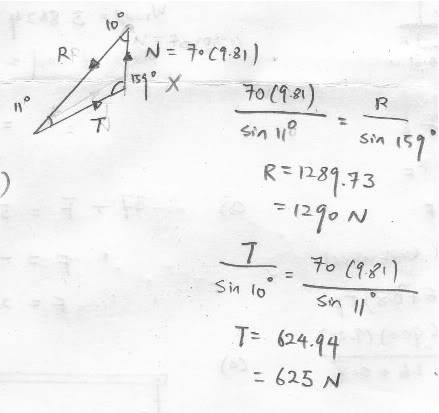 10°
R
N = 70(9.81)
159° X
11°
T
70(9.81) / sin 11° = R / sin 159°
)
R = 1289.73
= 1290 N
T / sin 10° = 70(9.81) / sin 11°
T = 624.94
= 625 N